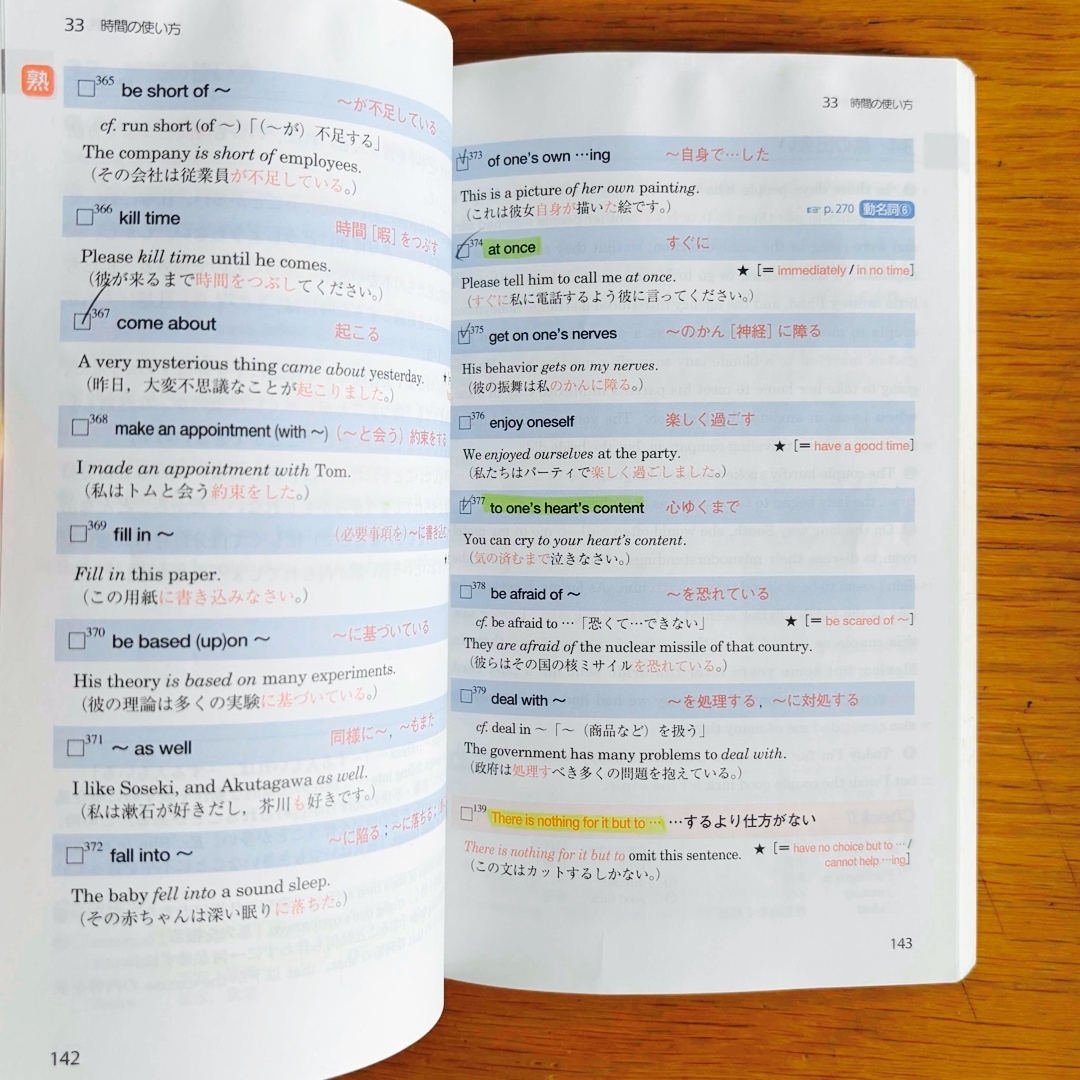 33 時間の使い方
熟
365 be short of ～ ～が不足している
cf. run short (of ～)「(～が) 不足する」
The company is short of employees.
(その会社は従業員が不足している。)
366 kill time 時間［暇］をつぶす
Please kill time until he comes.
(彼が来るまで時間をつぶしてください。)
367 come about 起こる
A very mysterious thing came about yesterday.
(昨日，大変不思議なことが起こりました。)
368 make an appointment (with ～) (～と会う) 約束をする
I made an appointment with Tom.
(私はトムと会う約束をした。)
369 fill in ～ (必要事項を)～に書き込む
Fill in this paper.
(この用紙に書き込みなさい。)
370 be based (up)on ～ ～に基づいている
His theory is based on many experiments.
(彼の理論は多くの実験に基づいている。)
371 ～ as well 同様に～，～もまた
I like Soseki, and Akutagawa as well.
(私は漱石が好きだし，芥川も好きです。)
372 fall into ～ ～に陥る；～に落ちる；
The baby fell into a sound sleep.
(その赤ちゃんは深い眠りに落ちた。)
142
33 時間の使い方
373 of one's own …ing ～自身で…した
This is a picture of her own painting.
(これは彼女自身が描いた絵です。) ☞ p.270 動名詞⑥
374 at once すぐに
★［= immediately / in no time］
Please tell him to call me at once.
(すぐに私に電話するよう彼に言ってください。)
375 get on one's nerves ～のかん［神経］に障る
His behavior gets on my nerves.
(彼の振舞は私のかんに障る。)
376 enjoy oneself 楽しく過ごす
★［= have a good time］
We enjoyed ourselves at the party.
(私たちはパーティで楽しく過ごしました。)
377 to one's heart's content 心ゆくまで
You can cry to your heart's content.
(気の済むまで泣きなさい。)
378 be afraid of ～ ～を恐れている
cf. be afraid to …「恐くて…できない」 ★［= be scared of ～］
They are afraid of the nuclear missile of that country.
(彼らはその国の核ミサイルを恐れている。)
379 deal with ～ ～を処理する，～に対処する
cf. deal in ～「～ (商品など) を扱う」
The government has many problems to deal with.
(政府は処理すべき多くの問題を抱えている。)
139 There is nothing for it but to … …するより仕方がない
There is nothing for it but to omit this sentence. ★［= have no choice but to … /
cannot help …ing］
(この文はカットするしかない。)
143